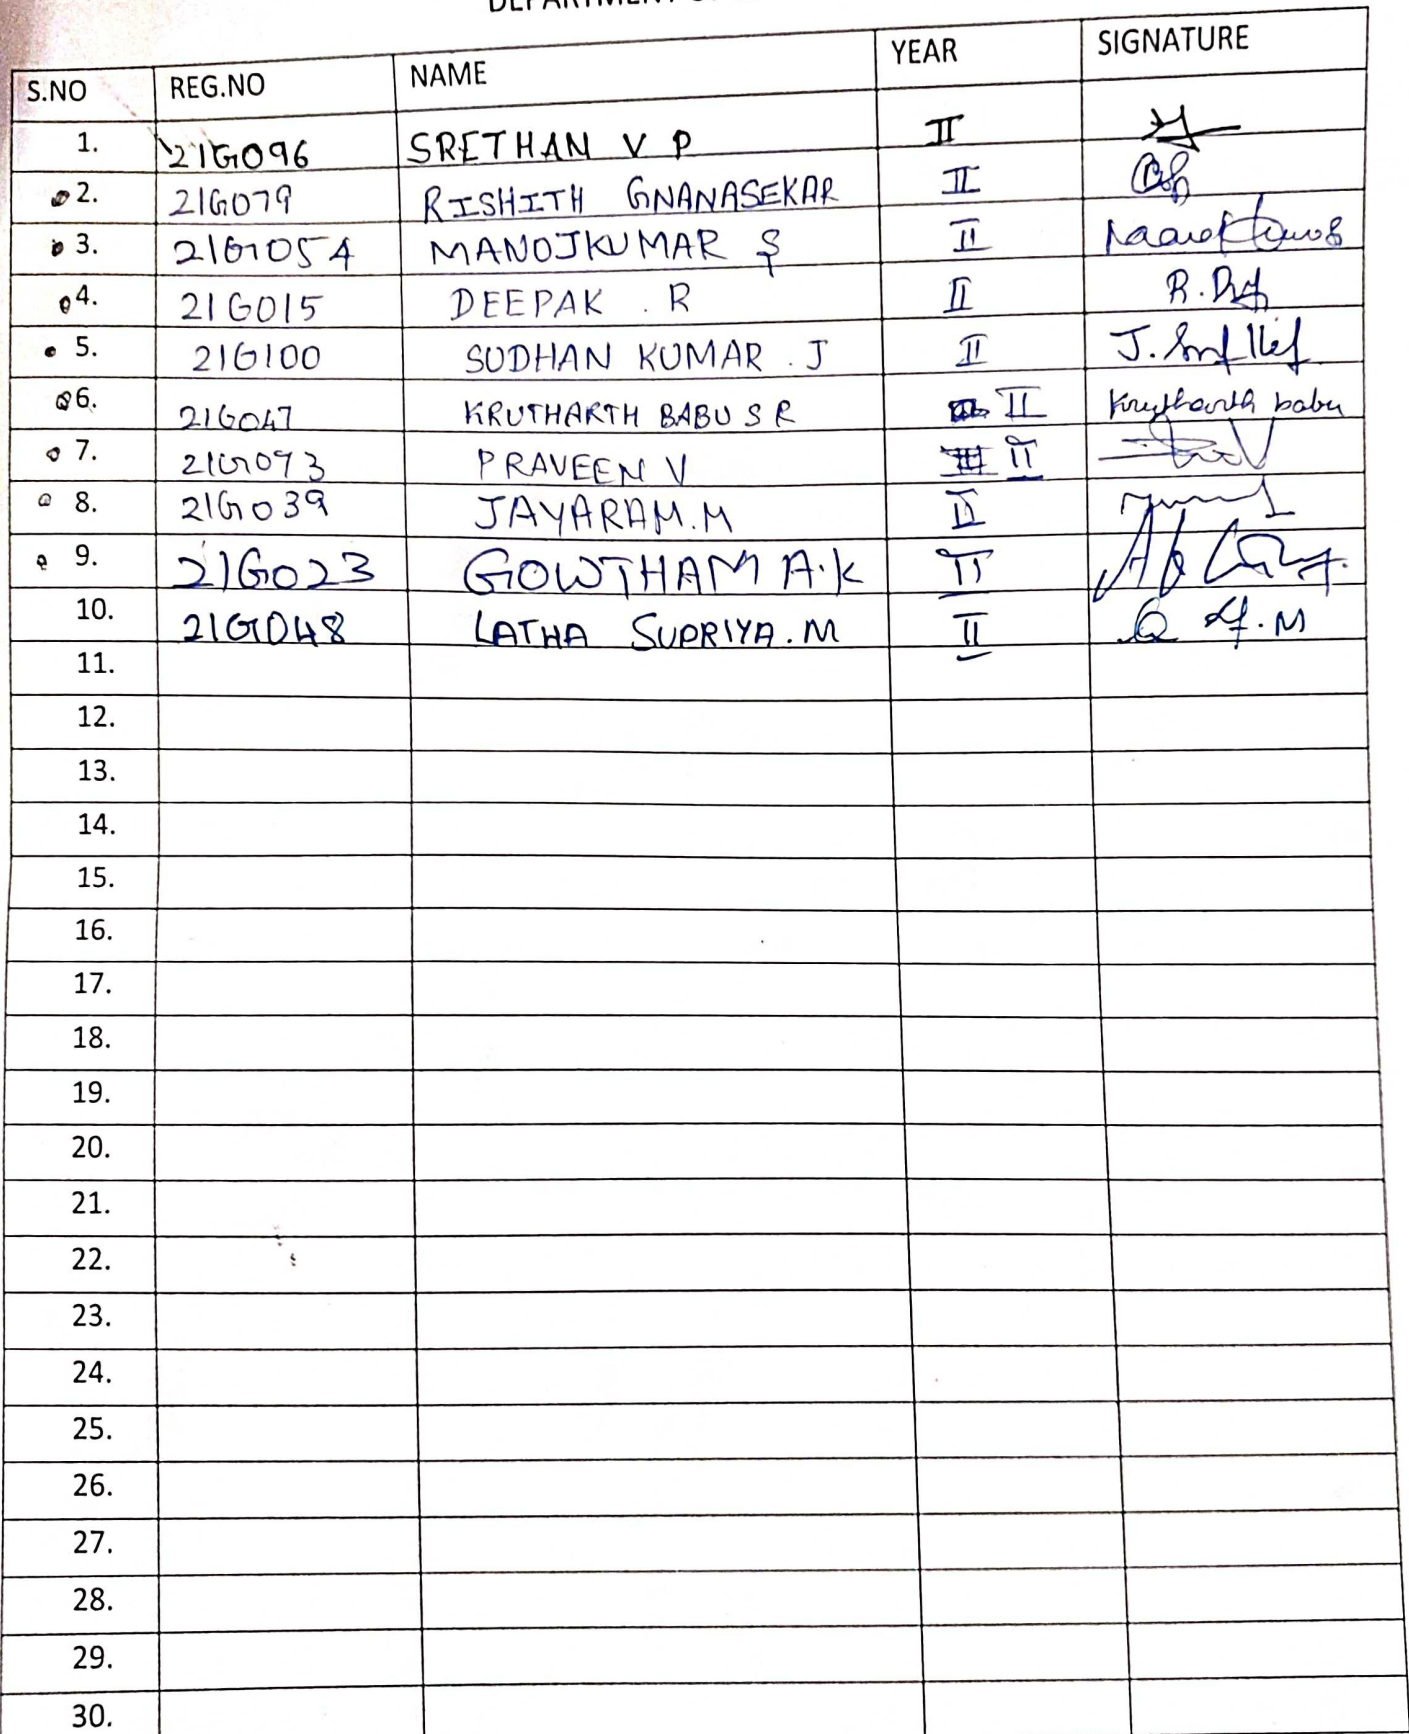 S.NO REG.NO NAME YEAR SIGNATURE
1. 21G096 SRETHAN V P II
2. 21G079 RISHITH GNANASEKAR II
3. 21G054 MANOJKUMAR S II
4. 21G015 DEEPAK . R II
5. 21G100 SUDHAN KUMAR . J II
6. 21G047 KRUTHARTH BABU S R II Krutharth babu
7. 21G073 PRAVEEN V II
8. 21G039 JAYARAM.M II
9. 21G023 GOWTHAM A.K II
10. 21G048 LATHA SUPRIYA.M II
11.
12.
13.
14.
15.
16.
17.
18.
19.
20.
21.
22.
23.
24.
25.
26.
27.
28.
29.
30.